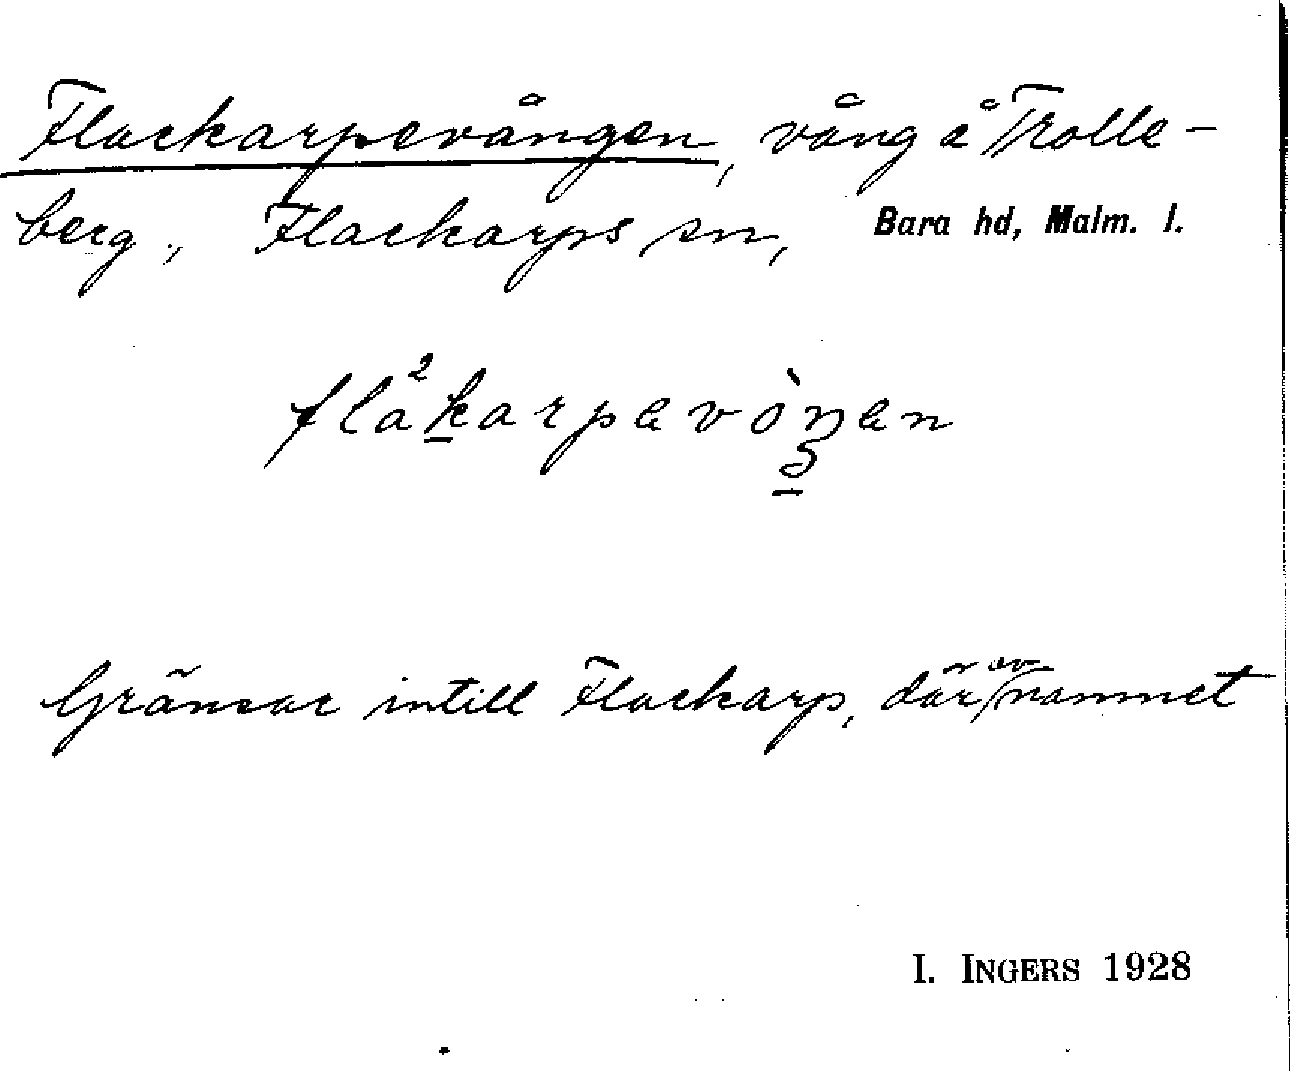 Flackarpevången, vång å Trolle-
berg, Flackarps sn, Bara hd, Malm. l.
fla²karpavòŋen
Gränsar intill Flackarp, därav namnet
I. INGERS 1928